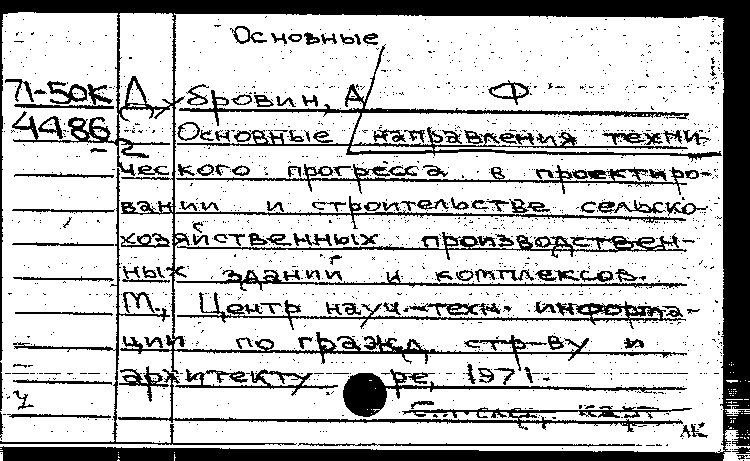 Основные
71-50К Дубровин, А Ф
4486-2 Основные направления техни-
ческого прогресса в проектиро-
вании и строительстве сельско-
хозяйственных производствен-
ных зданий и комплексов.
М., Центр науч.-техн. информа-
ции по гражд. стр-ву и
архитекту ре, 1971.
См. след. карт.
АК